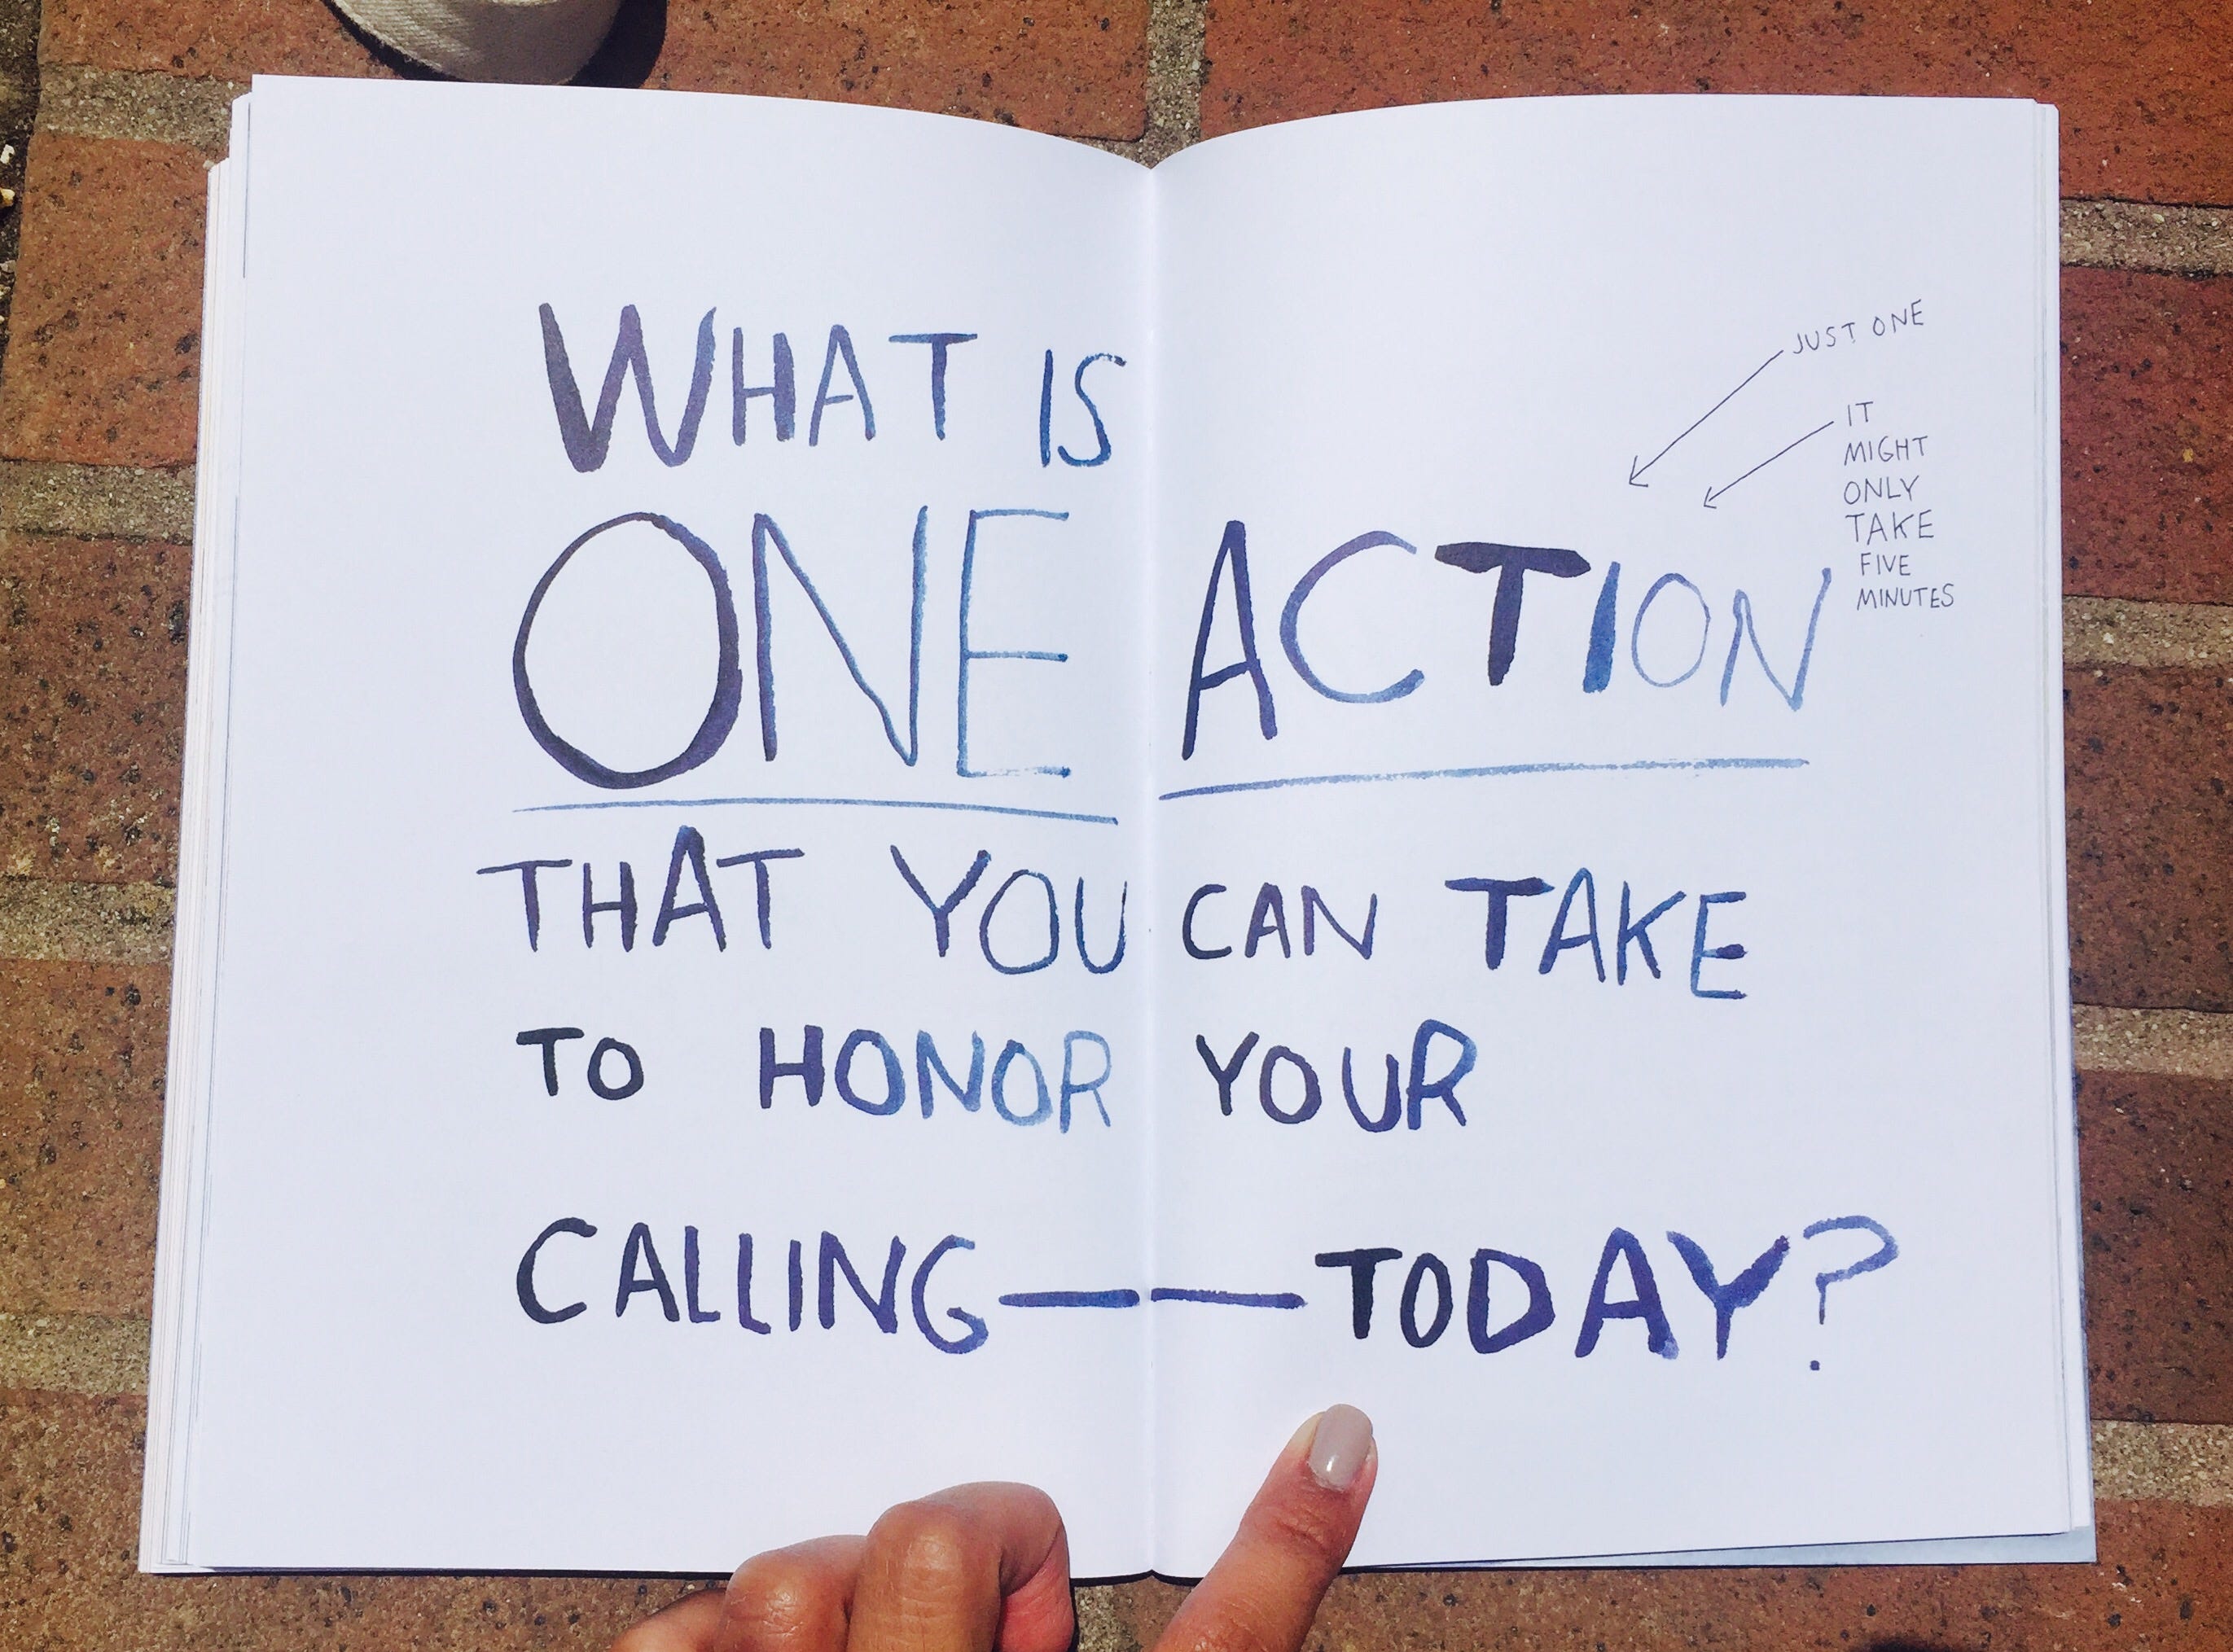 WHAT IS
ONE ACTION
THAT YOU CAN TAKE
TO HONOR YOUR
CALLING—— TODAY?
JUST ONE
IT
MIGHT
ONLY
TAKE
FIVE
MINUTES